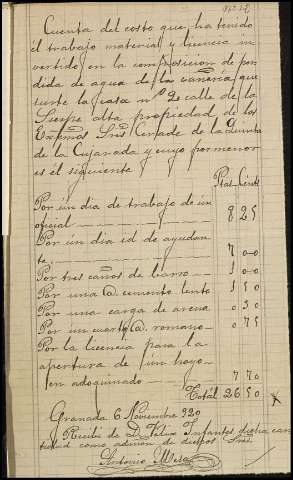 Cuenta del costo que ha tenido
el trabajo material y licencia in-
vertido en la composicion de per-
dida de agua de la cañeria que
surte la casa nº 2 calle de la
Sierpe alta propiedad de los
Exmos Sres Conde de la Quinta
de la Enjarada y cuyo pormenor
es el siguiente
Ptas Cénts
Por un dia de trabajo de un
oficial 8 25
Por un dia id de ayudan-
te 7 00
Por tres caños de barro 1 00
Por una @ cemento lento 1 50
Por una carga de arena 0 30
Por un cuarto @ romano 0 75
Por la licencia para la
apertura de un hoyo
en adoquinado 7 70
Total 26 50
Granada 6 Noviembre 920
Recibi de D. Felix Infantes dicha can
tidad como admon de dichos Sres
Antonio Mesa